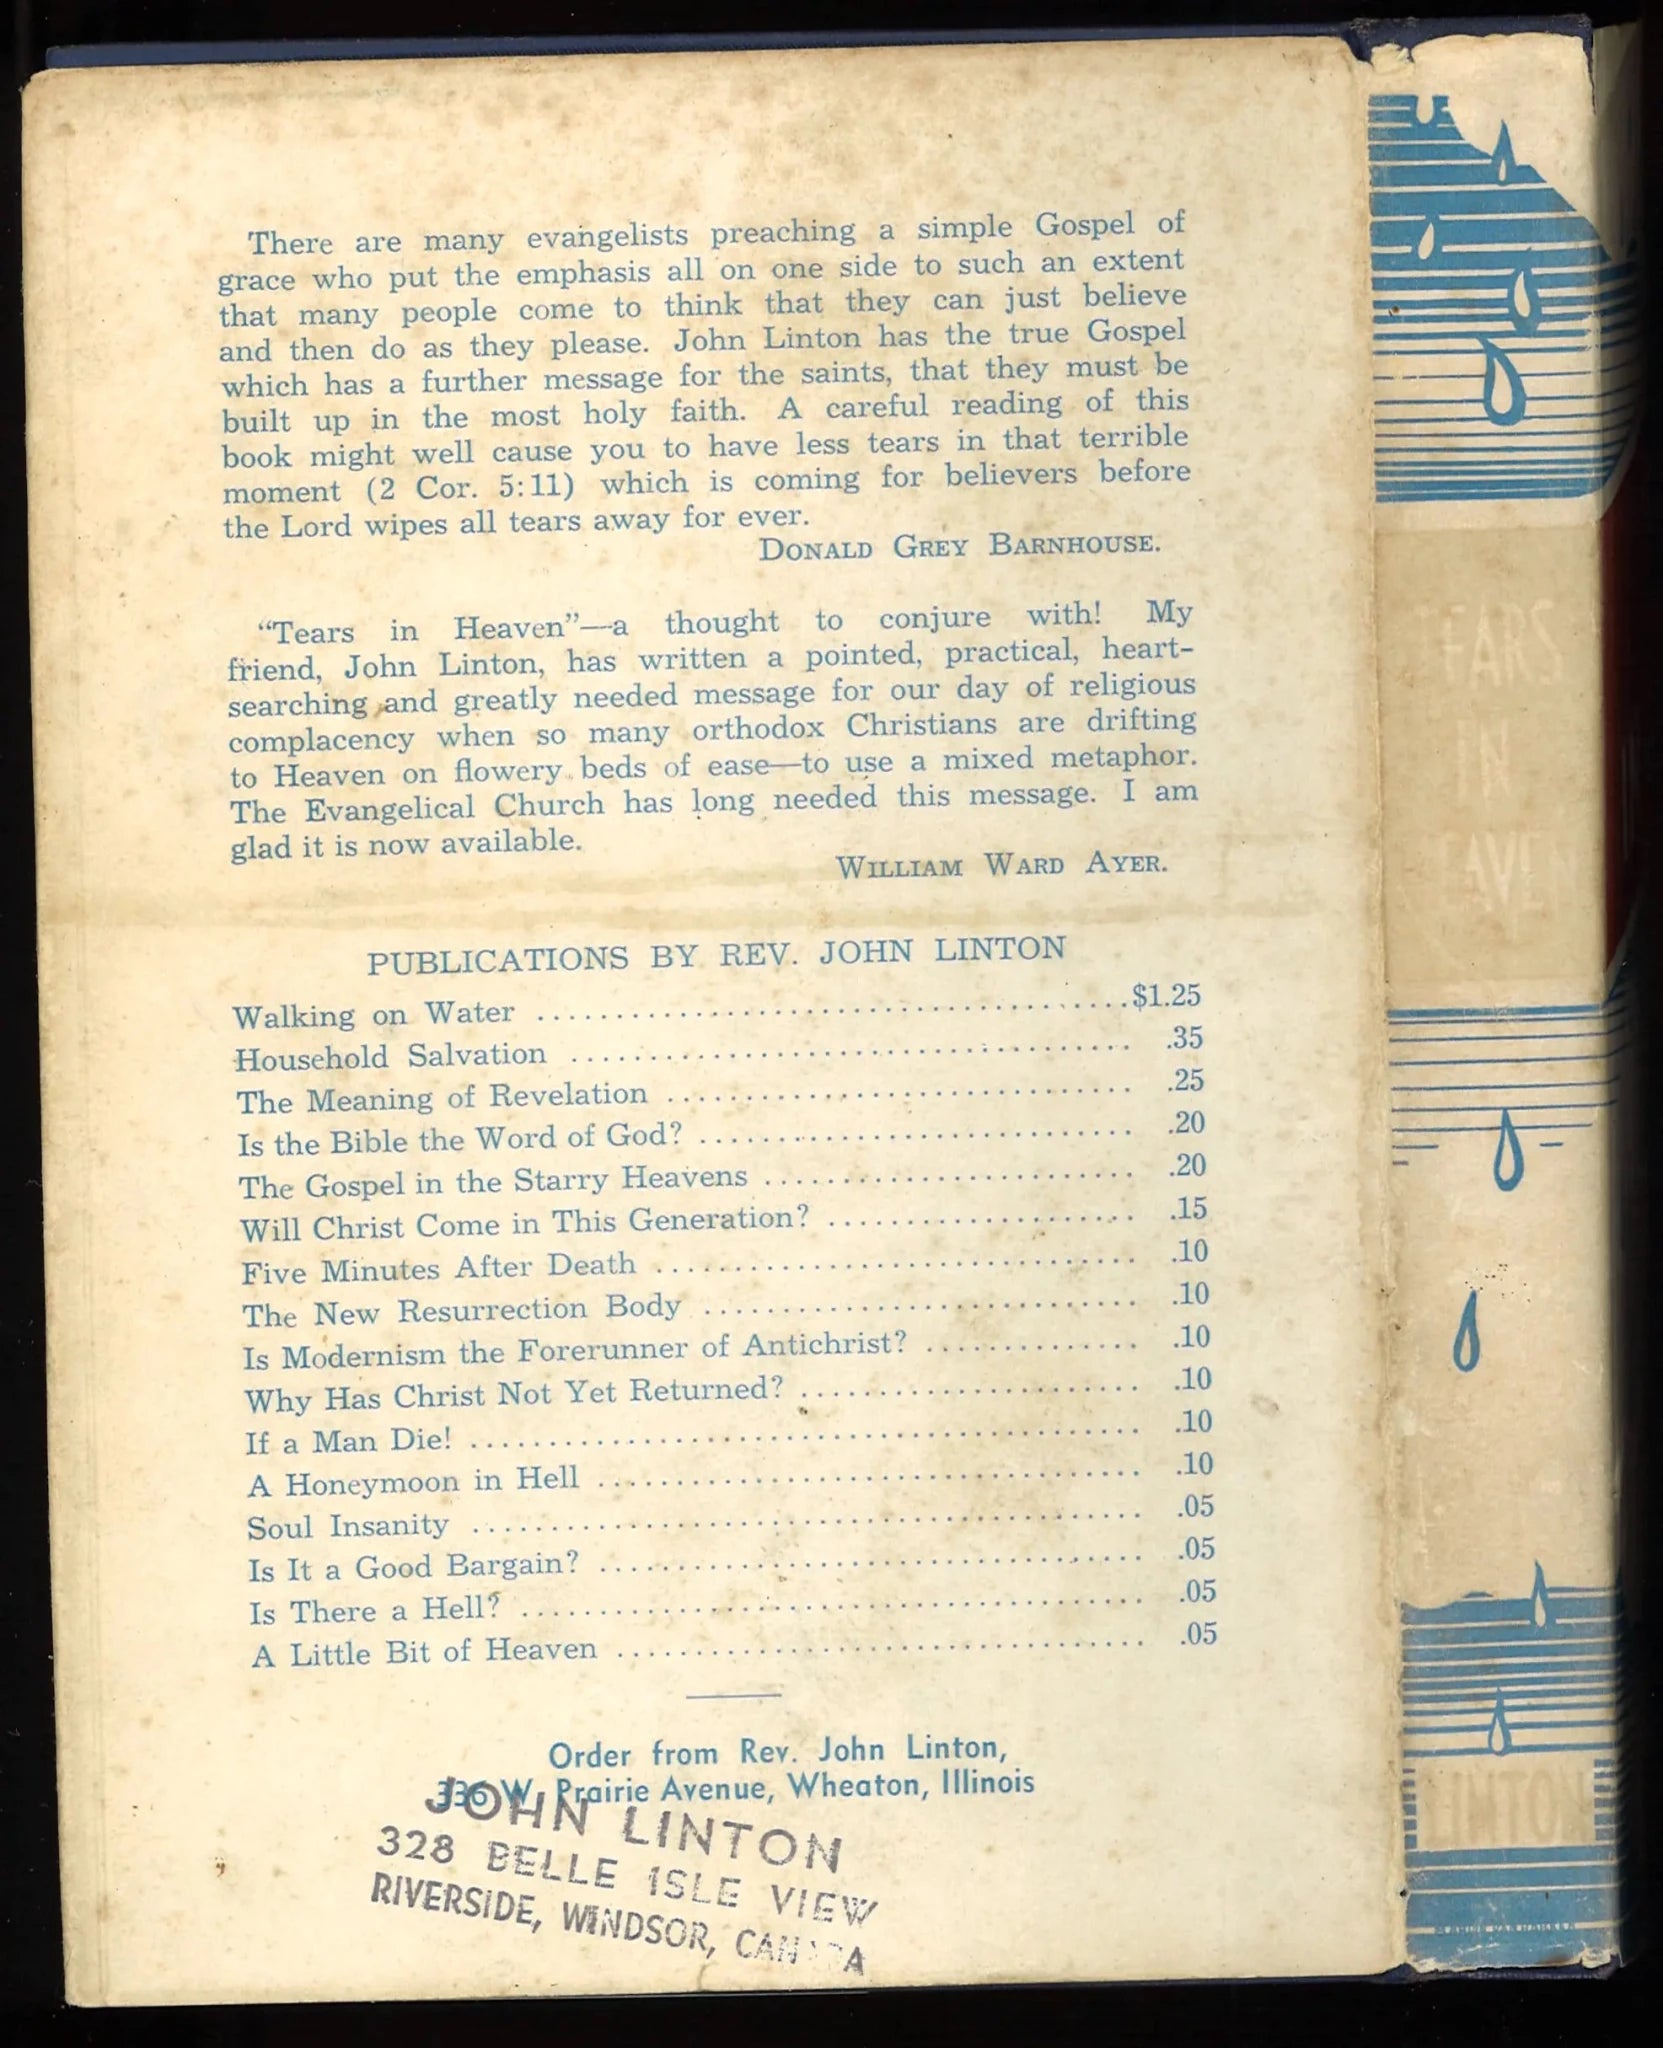 There are many evangelists preaching a simple Gospel of
grace who put the emphasis all on one side to such an extent
that many people come to think that they can just believe
and then do as they please. John Linton has the true Gospel
which has a further message for the saints, that they must be
built up in the most holy faith. A careful reading of this
book might well cause you to have less tears in that terrible
moment (2 Cor. 5:11) which is coming for believers before
the Lord wipes all tears away for ever.
DONALD GREY BARNHOUSE.
“Tears in Heaven”—a thought to conjure with! My
friend, John Linton, has written a pointed, practical, heart-
searching and greatly needed message for our day of religious
complacency when so many orthodox Christians are drifting
to Heaven on flowery beds of ease—to use a mixed metaphor.
The Evangelical Church has long needed this message. I am
glad it is now available.
WILLIAM WARD AYER.
PUBLICATIONS BY REV. JOHN LINTON
Walking on Water ........ $1.25
Household Salvation ........ .35
The Meaning of Revelation ........ .25
Is the Bible the Word of God? ........ .20
The Gospel in the Starry Heavens ........ .20
Will Christ Come in This Generation? ........ .15
Five Minutes After Death ........ .10
The New Resurrection Body ........ .10
Is Modernism the Forerunner of Antichrist? ........ .10
Why Has Christ Not Yet Returned? ........ .10
If a Man Die! ........ .10
A Honeymoon in Hell ........ .10
Soul Insanity ........ .05
Is It a Good Bargain? ........ .05
Is There a Hell? ........ .05
A Little Bit of Heaven ........ .05
Order from Rev. John Linton,
336 W. Prairie Avenue, Wheaton, Illinois
JOHN LINTON
328 BELLE ISLE VIEW
RIVERSIDE, WINDSOR, CANADA
IN
LINTON